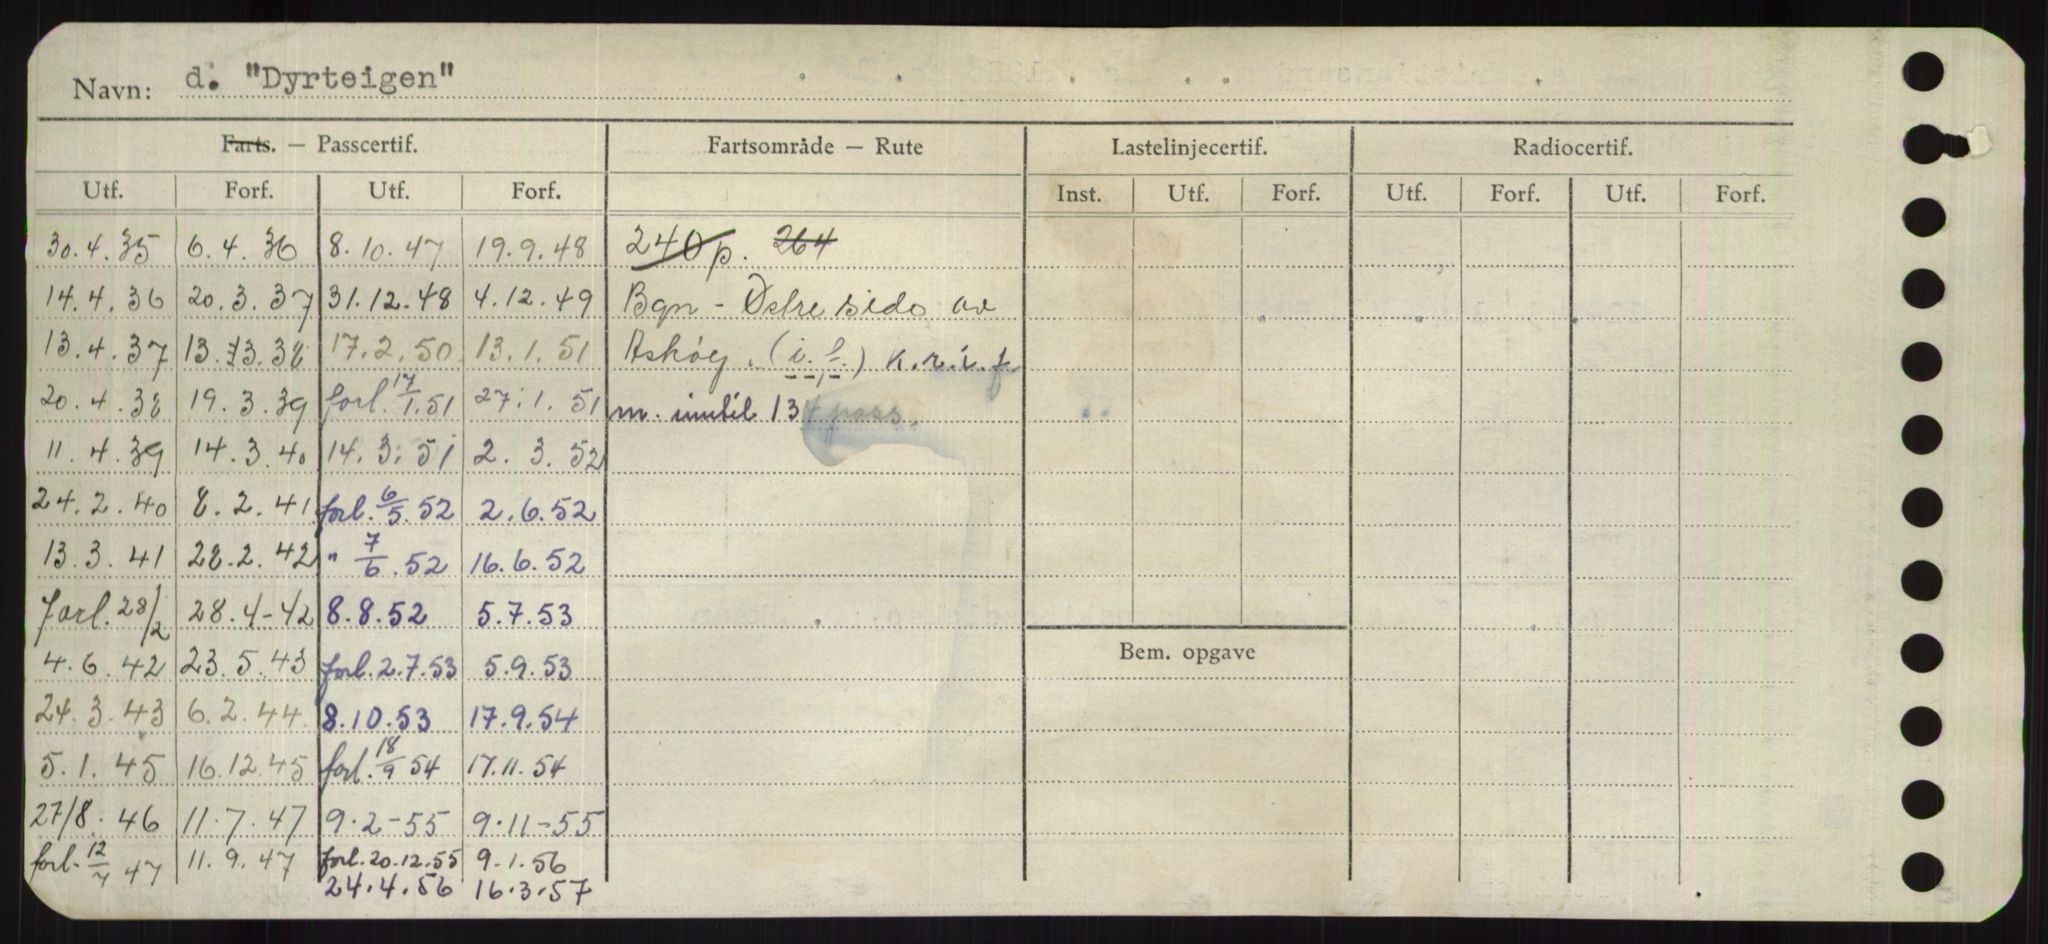 Navn: d. "Dyrteigen"
Farts. — Passcertif. Fartsområde — Rute Lastelinjecertif. Radiocertif.
Utf. Forf. Utf. Forf. Inst. Utf. Forf. Utf. Forf. Utf. Forf.
30.4.35 6.4.36 8.10.47 19.9.48 240p. 264
14.4.36 20.3.37 31.12.48 4.12.49 Bgn - Østre side av
13.4.37 13.3.38 17.2.50 13.1.51 Askøy. (i.f.) k.r.i.f
20.4.38 19.3.39 forl. 17/1.51 27.1.51 m. inntil 134 pass.
11.4.39 14.3.40 14.3.51 2.3.52
24.2.40 8.2.41 forl. 6/5.52 2.6.52
13.3.41 28.2.42 " 7/6.52 16.6.52
forl. 28/2 28.4-42 8.8.52 5.7.53
4.6.42 23.5.43 forl. 2.7.53 5.9.53 Bem. opgave
24.3.43 6.2.44 8.10.53 17.9.54
5.1.45 16.12.45 forl. 18/9 54 17.11.54
27/8.46 11.7.47 9.2-55 9.11-55
forl. 12/7 47 11.9.47 forl. 20.12.55 9.1.56
24.4.56 16.3.57